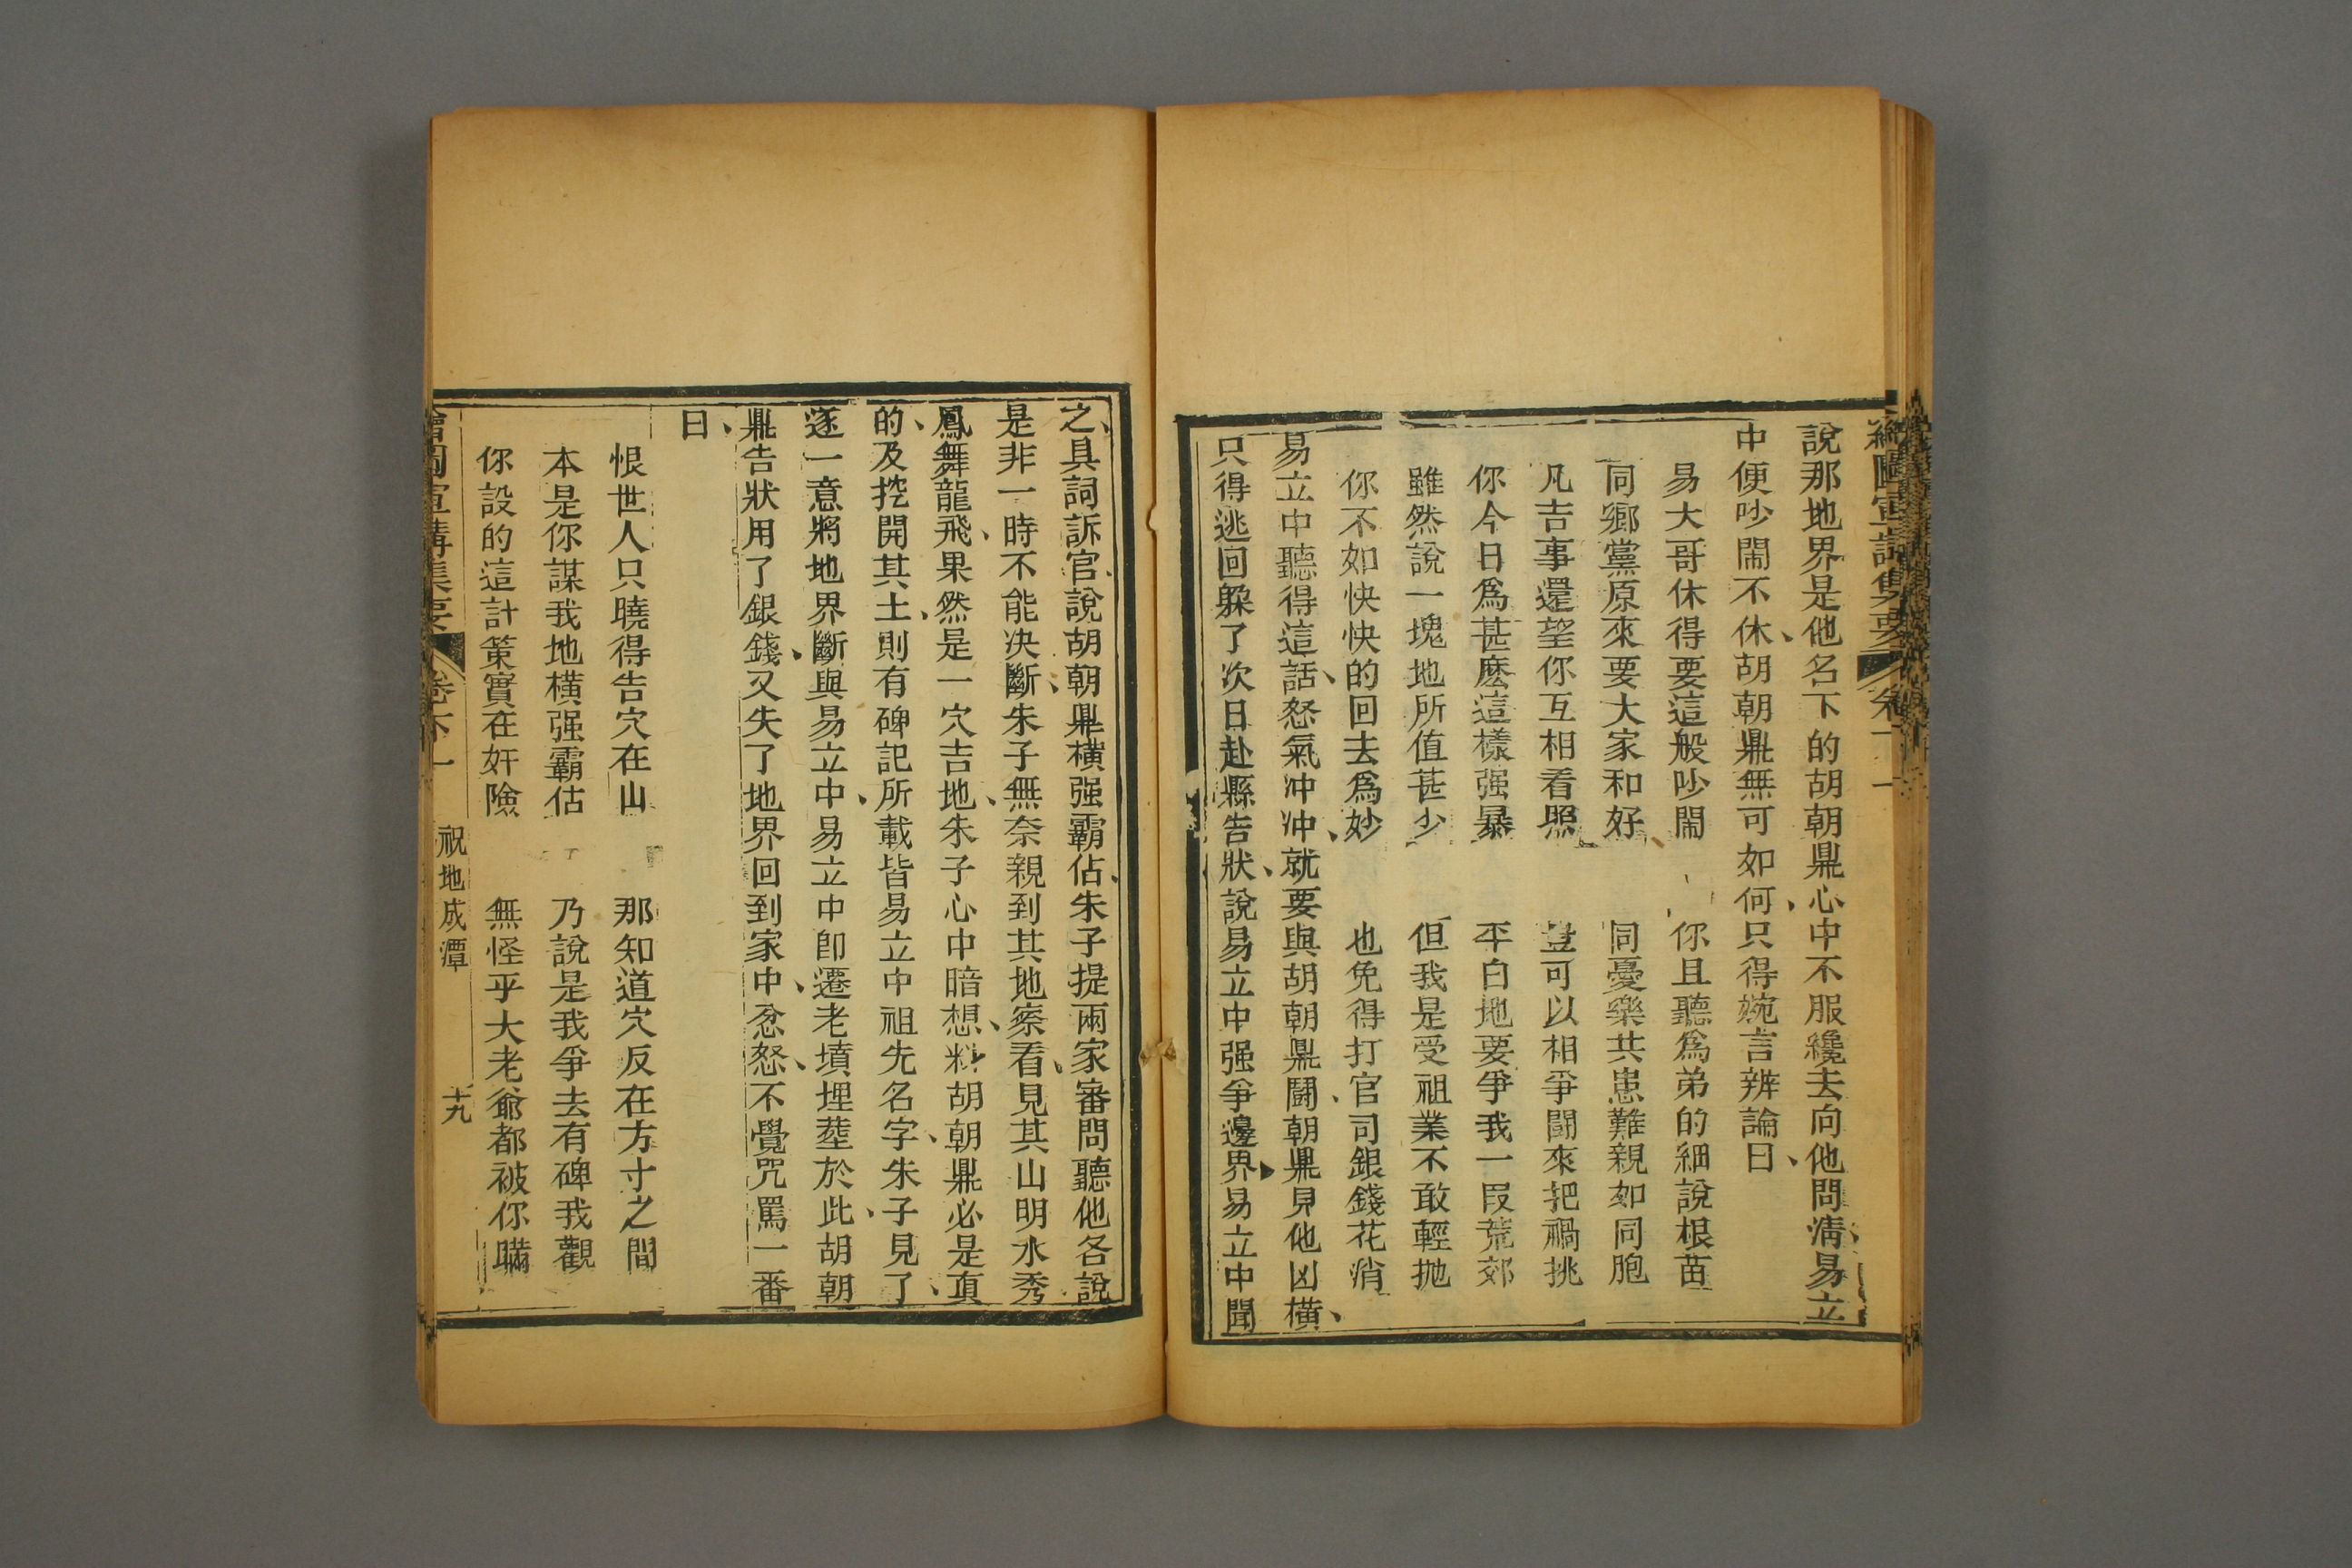 繪圖宣講集要 卷十一
說那地界是他名下的胡朝鼎心中不服纔去向他問清易立
中便吵鬧不休、胡朝鼎無可如何、只得婉言辨論曰、
易大哥休得要這般吵鬧 你且聽爲弟的細說根苗
同鄉黨原來要大家和好 同憂樂共患難親如同胞
凡吉事還望你互相看照 豈可以相爭鬪來把禍挑
你今日爲甚麼這樣强暴 平白地要爭我一段荒郊
雖然說一塊地所值甚少 但我是受祖業不敢輕拋
你不如快快的回去爲妙 也免得打官司銀錢花消
易立中聽得這話、怒氣冲冲、就要與胡朝鼎鬪、朝鼎見他凶橫、
只得逃回躱了次日赴縣告狀、說易立中强爭邊界、易立中聞
之、具詞訴官、說胡朝鼎橫强霸佔、朱子提兩家審問聽他各說
是非一時不能決斷、朱子無奈親到其地察看、見其山明水秀
鳳舞龍飛、果然是一穴吉地、朱子心中暗想、料胡朝鼎必是頂
的、及挖開其土、則有碑記所載皆易立中祖先名字、朱子見了、
逐一意將地界斷與易立中、易立中卽遷老墳埋塟於此、胡朝
鼎告狀用了銀錢、又失了地界回到家中、忿怒、不覺咒罵一番
曰、
恨世人只曉得告穴在山 那知道穴反在方寸之間
本是你謀我地橫强霸估 乃說是我爭去有碑我觀
你設的這計策實在奸險 無怪乎大老爺都被你瞞
繪圖宣講集要 卷十一 祝地成潭 十九